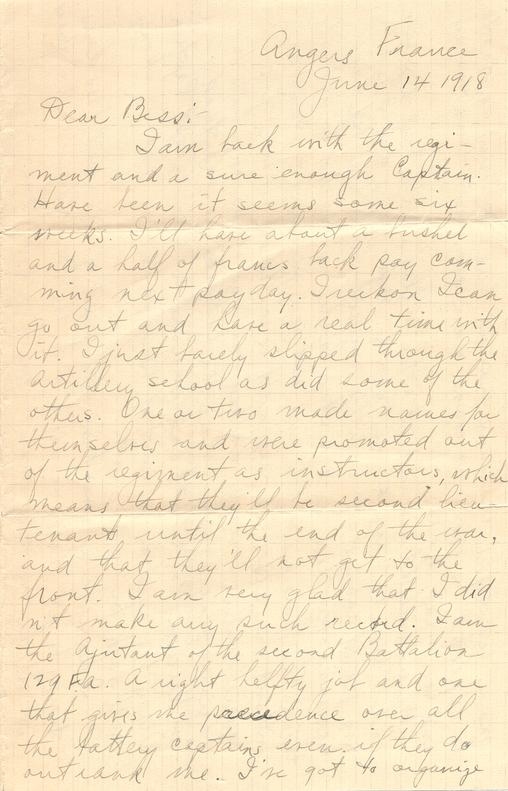 Angers France
June 14 1918
Dear Bess:-
I am back with the regi-
ment and a sure enough Captain.
Have been it seems some six
weeks. I'll have about a bushel
and a half of francs back pay com-
ming next payday. I reckon I can
go out and have a real time with
it. I just barely slipped through the
Artillery school as did some of the
others. One or two made names for
themselves and were promoted out
of the regiment as instructors, which
means that they'll be second lieu-
tenants until the end of the war,
and that they'll not get to the
front. I am very glad that I did
n't make any such record. I am
the Ajutant of the second Battalion
129 F.a. A right helfty job and one
that gives me precedence over all
the battery captains even if they do
outrank me. I've got to organize